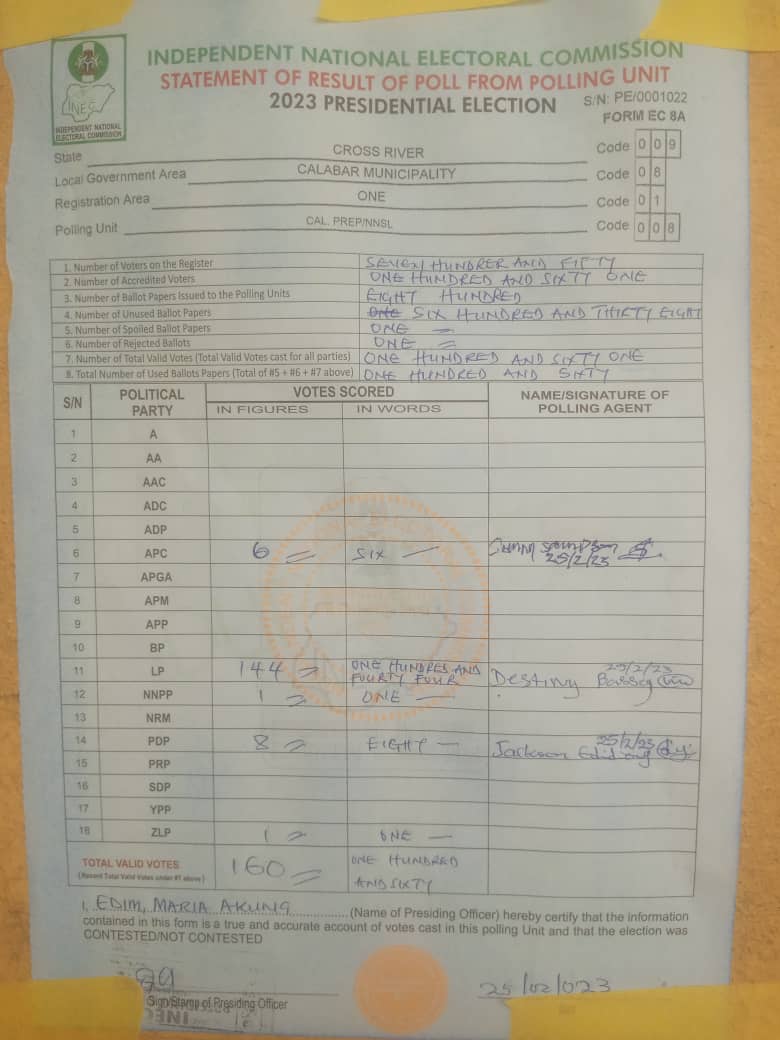 INDEPENDENT NATIONAL ELECTORAL COMMISSION
STATEMENT OF RESULT OF POLL FROM POLLING UNIT
2023 PRESIDENTIAL ELECTION
S/N: PE/0001022
FORM EC 8A
INEC
INDEPENDENT NATIONAL
ELECTORAL COMMISSION
State CROSS RIVER Code 0 0 9
Local Government Area CALABAR MUNICIPALITY Code 0 8
Registration Area ONE Code 0 1
Polling Unit CAL. PREP/NNSL Code 0 0 8
1. Number of Voters on the Register SEVEN HUNDRER AND FIFTY
2. Number of Accredited Voters ONE HUNDRED AND SIXTY ONE
3. Number of Ballot Papers Issued to the Polling Units EIGHT HUNDRED
4. Number of Unused Ballot Papers ONE SIX HUNDRED AND THIRTY EIGHT
5. Number of Spoiled Ballot Papers ONE —
6. Number of Rejected Ballots ONE =
7. Number of Total Valid Votes (Total Valid Votes cast for all parties) ONE HUNDRED AND SIXTY ONE
8. Total Number of Used Ballots Papers (Total of #5 + #6 + #7 above) ONE HUNDRED AND SIXTY
S/N POLITICAL PARTY VOTES SCORED NAME/SIGNATURE OF POLLING AGENT
IN FIGURES IN WORDS
1 A
2 AA
3 AAC
4 ADC
5 ADP
6 APC 6 = SIX — 25/2/23
7 APGA
8 APM
9 APP
10 BP
11 LP 144 = ONE HUNDRED AND FOURTY FOUR Destiny Bassey 25/2/23
12 NNPP 1 = ONE —
13 NRM
14 PDP 8 = EIGHT — Jackson 25/2/23
15 PRP
16 SDP
17 YPP
18 ZLP 1 = ONE —
TOTAL VALID VOTES 160 = ONE HUNDRED AND SIXTY
(Record Total Valid Votes under #7 above)
I, EDIM, MARIA AKUNG (Name of Presiding Officer) hereby certify that the information
contained in this form is a true and accurate account of votes cast in this polling Unit and that the election was
CONTESTED/NOT CONTESTED
25/02/023
Sign/Stamp of Presiding Officer